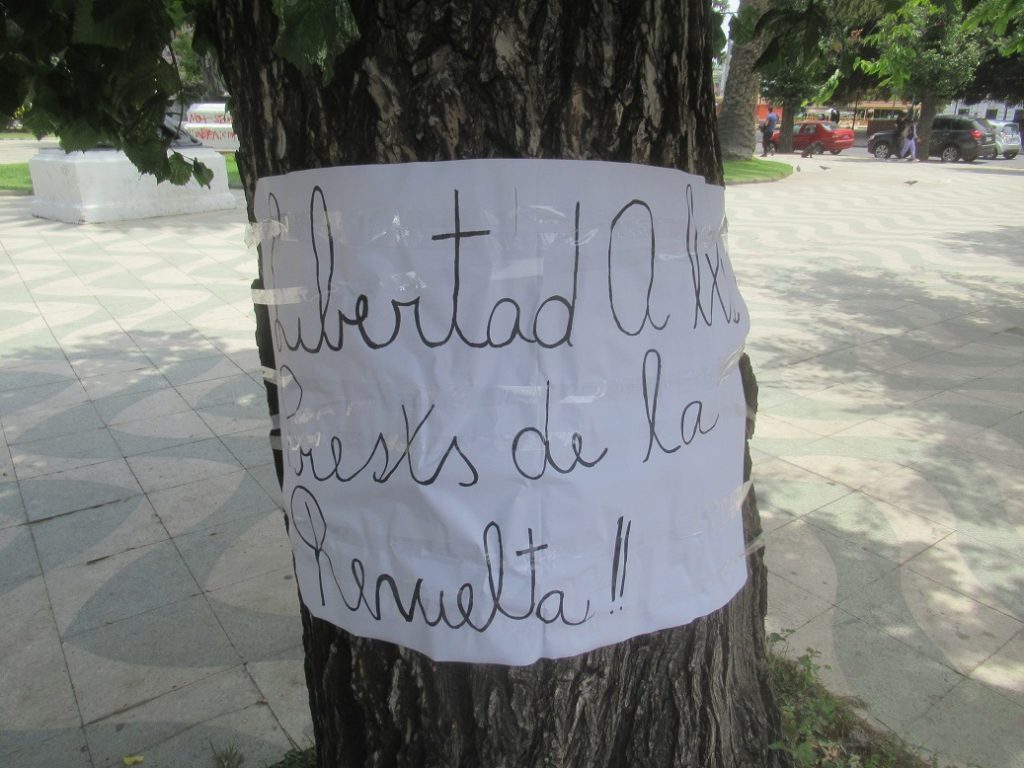 Libertad A lxs
Presxs de la
Revuelta !!